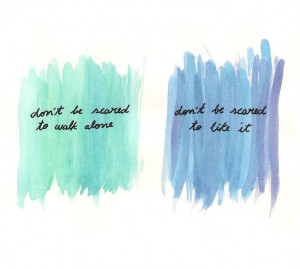 don't be scared
to walk alone
don't be scared
to like it